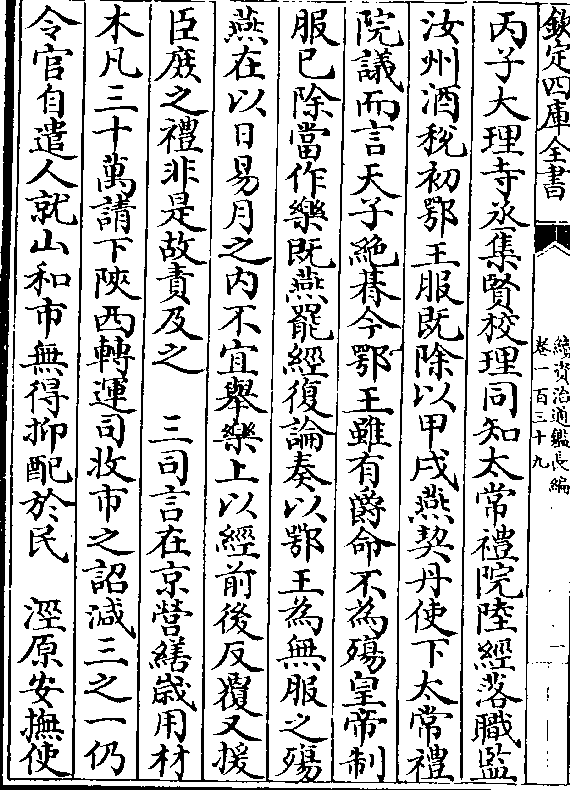 欽定四庫全書
續資治通鑑長編
卷一百三十九
丙子大理寺丞集賢校理同知太常禮院陸經落職監
汝州酒稅初鄂王服既除以甲戌燕契丹使下太常禮
院議而言天子絶朞今鄂王雖有爵命不為殤皇帝制
服已除當作樂既燕罷經復論奏以鄂王為無服之殤
燕在以日易月之內不宜舉樂上以經前後反覆又援
臣庶之禮非是故責及之　三司言在京營繕歳用材
木凡三十萬請下陜西轉運司收市之詔減三之一仍
令官自遣人就山和市無得抑配於民　涇原安撫使